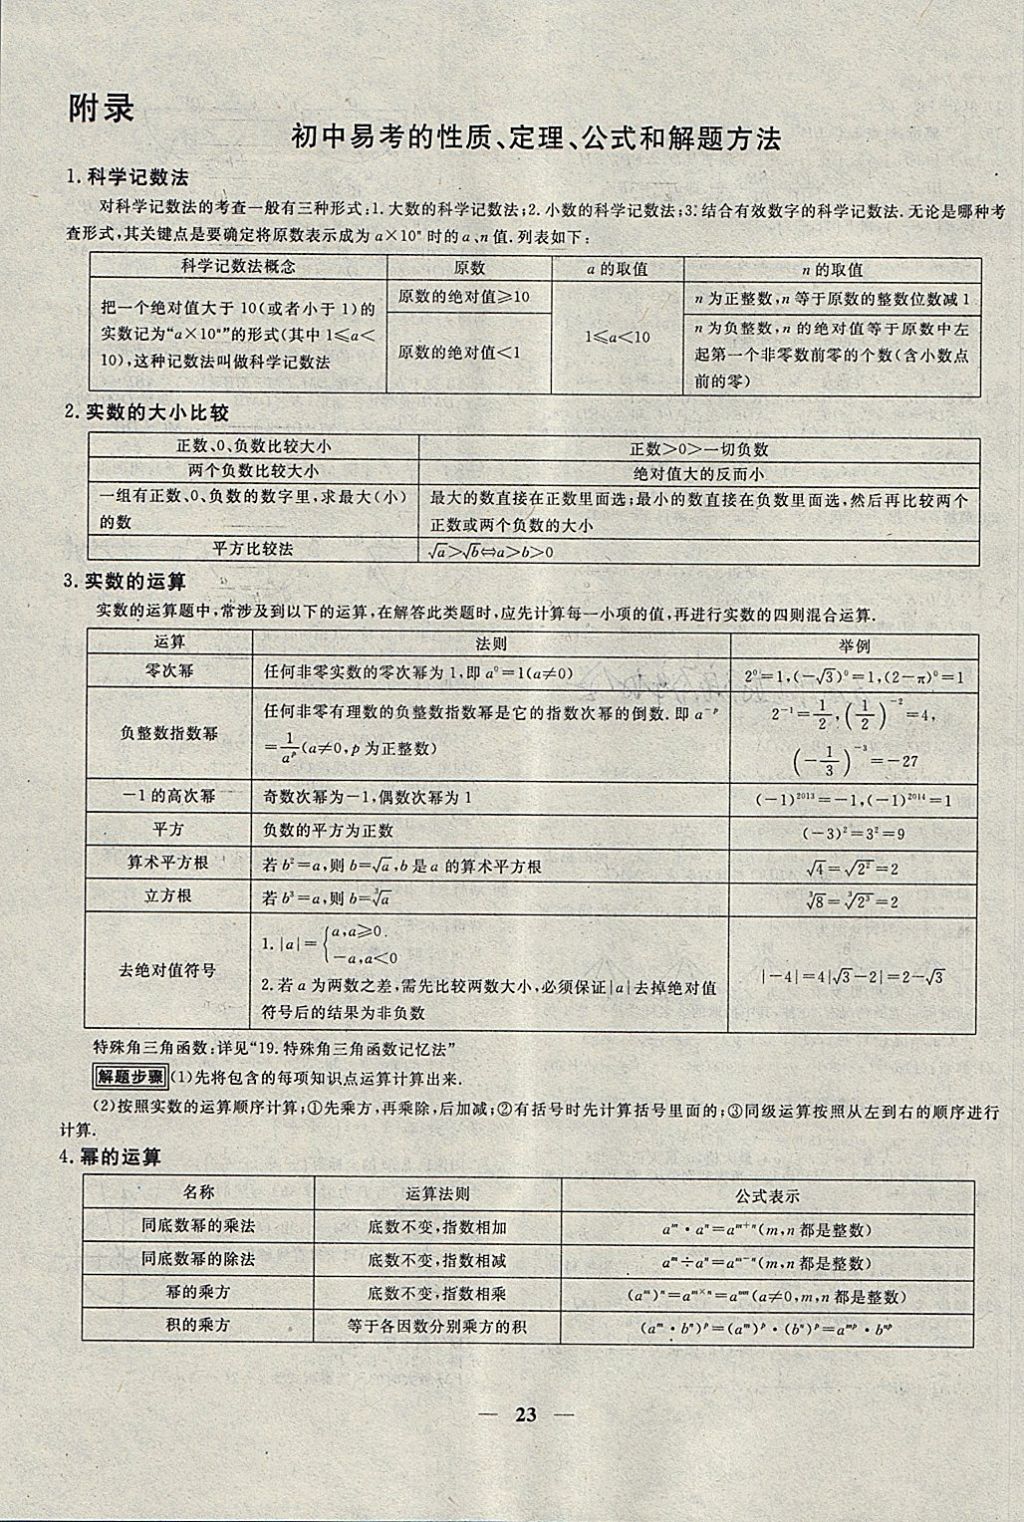 附录
初中易考的性质、定理、公式和解题方法
1.科学记数法
对科学记数法的考查一般有三种形式:1.大数的科学记数法;2.小数的科学记数法;3.结合有效数字的科学记数法.无论是哪种考
查形式,其关键点是要确定将原数表示成为a×10ⁿ时的a、n值.列表如下:
科学记数法概念 原数 a的取值 n的取值
把一个绝对值大于10(或者小于1)的
实数记为“a×10ⁿ”的形式(其中1≤a<
10),这种记数法叫做科学记数法
原数的绝对值≥10
原数的绝对值<1
1≤a<10
n为正整数,n等于原数的整数位数减1
n为负整数,n的绝对值等于原数中左
起第一个非零数前零的个数(含小数点
前的零)
2.实数的大小比较
正数、0、负数比较大小 正数>0>一切负数
两个负数比较大小 绝对值大的反而小
一组有正数、0、负数的数字里,求最大(小)
的数
最大的数直接在正数里面选;最小的数直接在负数里面选,然后再比较两个
正数或两个负数的大小
平方比较法 √a>√b⇔a>b>0
3.实数的运算
实数的运算题中,常涉及到以下的运算,在解答此类题时,应先计算每一小项的值,再进行实数的四则混合运算.
运算 法则 举例
零次幂 任何非零实数的零次幂为1,即a⁰=1(a≠0) 2⁰=1,(−√3)⁰=1,(2−π)⁰=1
负整数指数幂
任何非零有理数的负整数指数幂是它的指数次幂的倒数.即a⁻ᵖ
=1/aᵖ(a≠0,p为正整数)
2⁻¹=1/2,(1/2)⁻²=4,
(−1/3)⁻³=−27
−1的高次幂 奇数次幂为−1,偶数次幂为1 (−1)²⁰¹³=−1,(−1)²⁰¹⁴=1
平方 负数的平方为正数 (−3)²=3²=9
算术平方根 若b²=a,则b=√a,b是a的算术平方根 √4=√2²=2
立方根 若b³=a,则b=∛a ∛8=∛2³=2
去绝对值符号
1.|a|={a,a≥0.
−a,a<0
2.若a为两数之差,需先比较两数大小,必须保证|a|去掉绝对值
符号后的结果为非负数
|−4|=4|√3−2|=2−√3
特殊角三角函数:详见“19.特殊角三角函数记忆法”
解题步骤(1)先将包含的每项知识点运算计算出来.
(2)按照实数的运算顺序计算;①先乘方,再乘除,后加减;②有括号时先计算括号里面的;③同级运算按照从左到右的顺序进行
计算.
4.幂的运算
名称 运算法则 公式表示
同底数幂的乘法 底数不变,指数相加 aᵐ·aⁿ=aᵐ⁺ⁿ(m,n都是整数)
同底数幂的除法 底数不变,指数相减 aᵐ÷aⁿ=aᵐ⁻ⁿ(m,n都是整数)
幂的乘方 底数不变,指数相乘 (aᵐ)ⁿ=aᵐ×ⁿ=aᵐⁿ(a≠0,m,n都是整数)
积的乘方 等于各因数分别乘方的积 (aᵐ·bⁿ)ᵖ=(aᵐ)ᵖ·(bⁿ)ᵖ=aᵐᵖ·bⁿᵖ
— 23 —